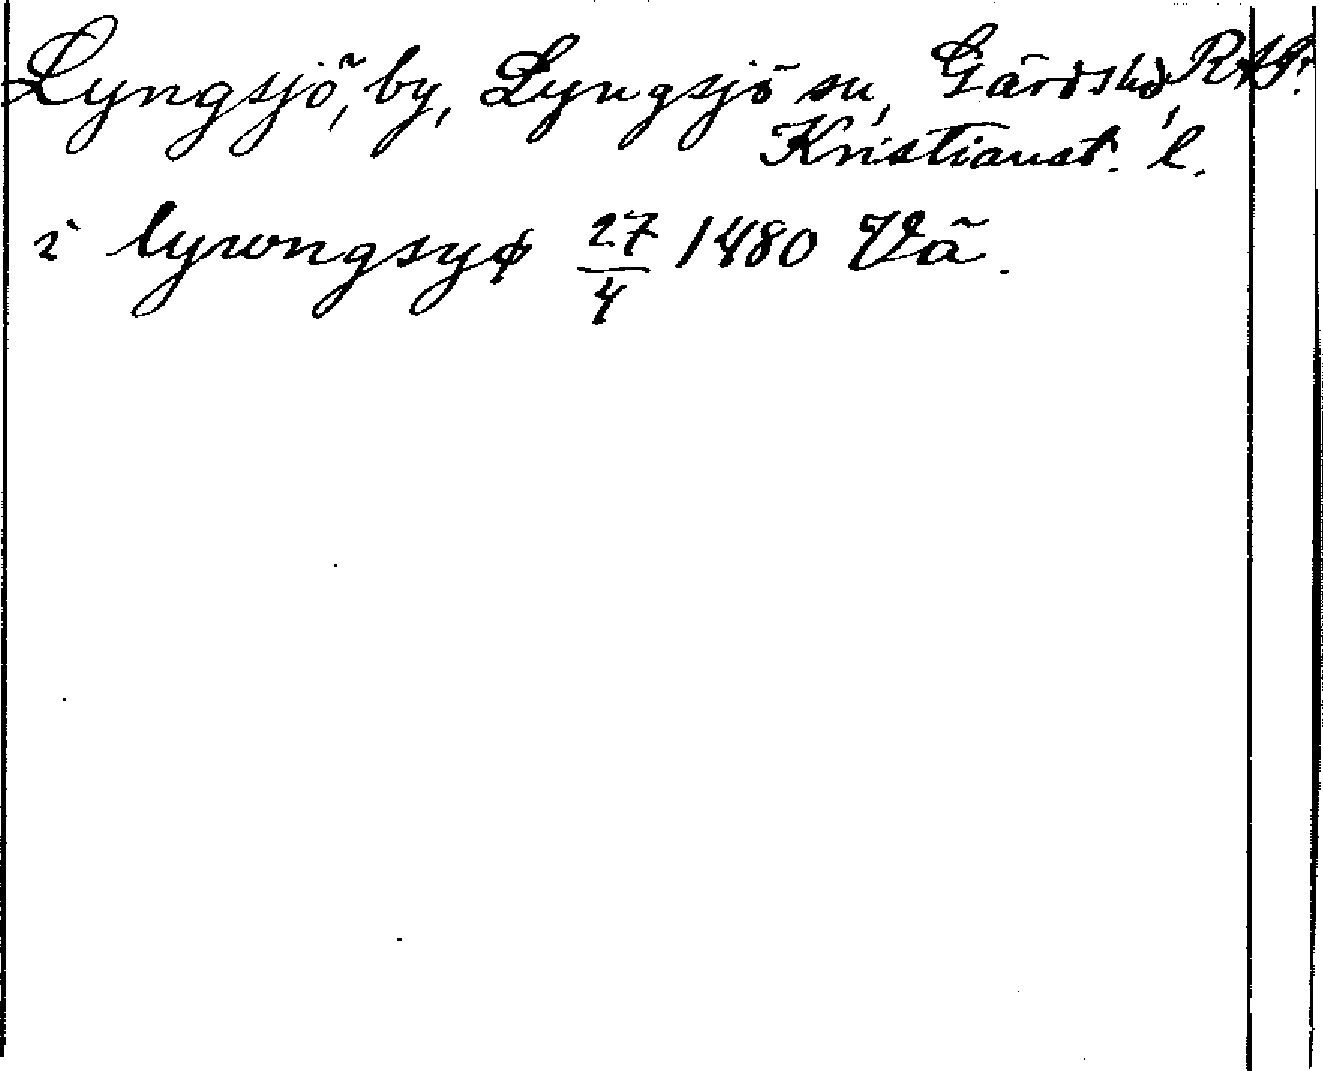 Lyngsjö, by, Lyngsjö sn, Gärds hd,
Kristianst. l.
i lywngsyø 27/4 1480 Vä.